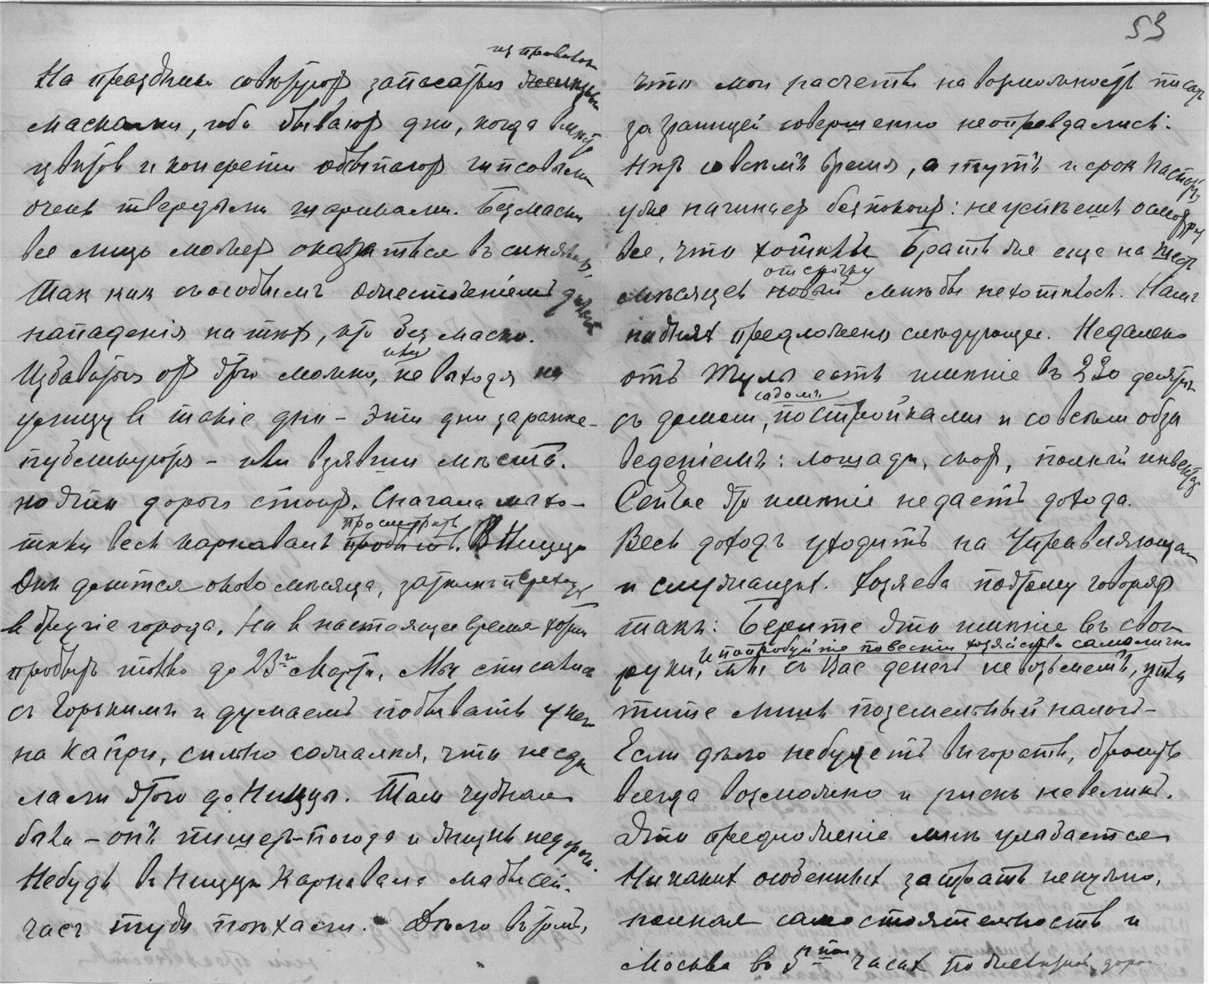 53
На праздники советуют запасаться из проволоки
масками, ибо бывают дни, когда вместо
цветов и конфетти обсыпают гипсовыми
очень твердыми шариками. Без маски
все лицо может оказаться в синяках,
Так как съ особымъ ожесточеніемъ делают
нападенія на тѣх, кто без маски.
Избавиться от этого можно, или не выходя на
улицу в такіе дни – эти дни заранѣе
публикуются – или взявши мѣста.
но это дорого стоит. Сначала мы хо-
тѣли весь карнавалъ просмотрѣть. В Ниццѣ
Он длится около мѣсяца, затѣмъ переход
в другіе города. Но в настоящее время хотим
пробыть только до 23го Марта. Мы списались
съ Горькимъ и думаемъ побывать у него
на Капри, сильно сожалѣя, что не сдѣ
лали этого до Ниццы. Там чудная
была – онъ пишет – погода и жизнь недорога.
Небудь в Ниццѣ Карнавала мы бы сей-
час туда поѣхали. Дѣло в том,
что мои расчеты на возможность писать
за границей совершенно неоправдались.
Нѣт совсѣмъ время, а тутъ и срок паспорту
уже начинает безпокоить: не успѣешь осмотрѣть
все, что хотѣлъ. Брать же еще на шесть
мѣсяцев отсрочку мнѣ бы не хотѣлось. Нам
на днях предложено слѣдующее. Недалеко
отъ Тулы есть имѣніе въ 220 десятин
съ домом, садомъ, постройками и со всѣм обза
веденіемъ: лошади, скот, полный инвентарь
Сейчас это имѣніе не даетъ дохода.
Весь доходъ уходитъ на Управляющаго
и служащих. Хозяева поэтому говорят
такъ: Берите это имѣніе въ свои
руки, и попробуйте повести хозяйство самолично мы съ Вас денегъ не возьмемъ, упла
тите лишь поземельный налогъ –
Если дѣло небудетъ выгорать, бросить
всегда возможно и риск не великъ.
Это предложеніе мнѣ улыбается
Никаких особенных затратъ ненужно,
полная самостоятельность и
Москва во 5ти часах по желѣзной дорог